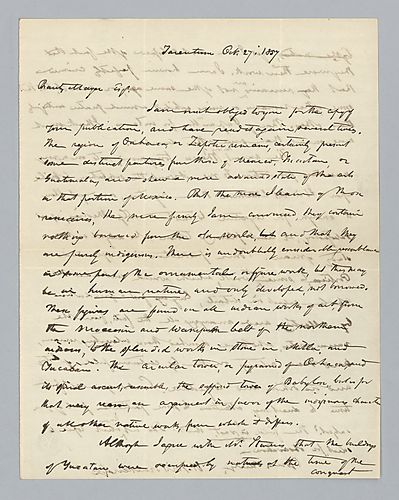 Tarentum Oct. 27. 1857
Brantz Mayer Esq.
I am much obliged to you for the copy of
your publication, and have read it again several times.
The region of Oahaca or Zapotec remains, certainly present
some distinct features from those of Mexico, Yucatan or
Guatemala, and show a more advanced state of the arts
in that portion of Mexico. But the more I learn of these
the more firmly I am convinced they contain
nothing borrowed from the old world, and that they
are purely indigenous. There is undoubtedly considerable resemblance
in some part of the ornamental or figure work, but this may
be in human nature, and only developed not borrowed.
These figures are found on all indian works of art from
the moccasin and wampum belt of the northern
to the splendid works in stone in Mitla and
Yucatan. The circular tower or pyramid of Oahaca and
its spiral ascent, resemble the supposed tower of Babylon but is for
that very reason an argument in favor of the indigenous character
of all other native work, from which it differs.
Although I agree with Mr. Stevens that the buildings
of Yucatan were occupied by natives at the time of the
conquest